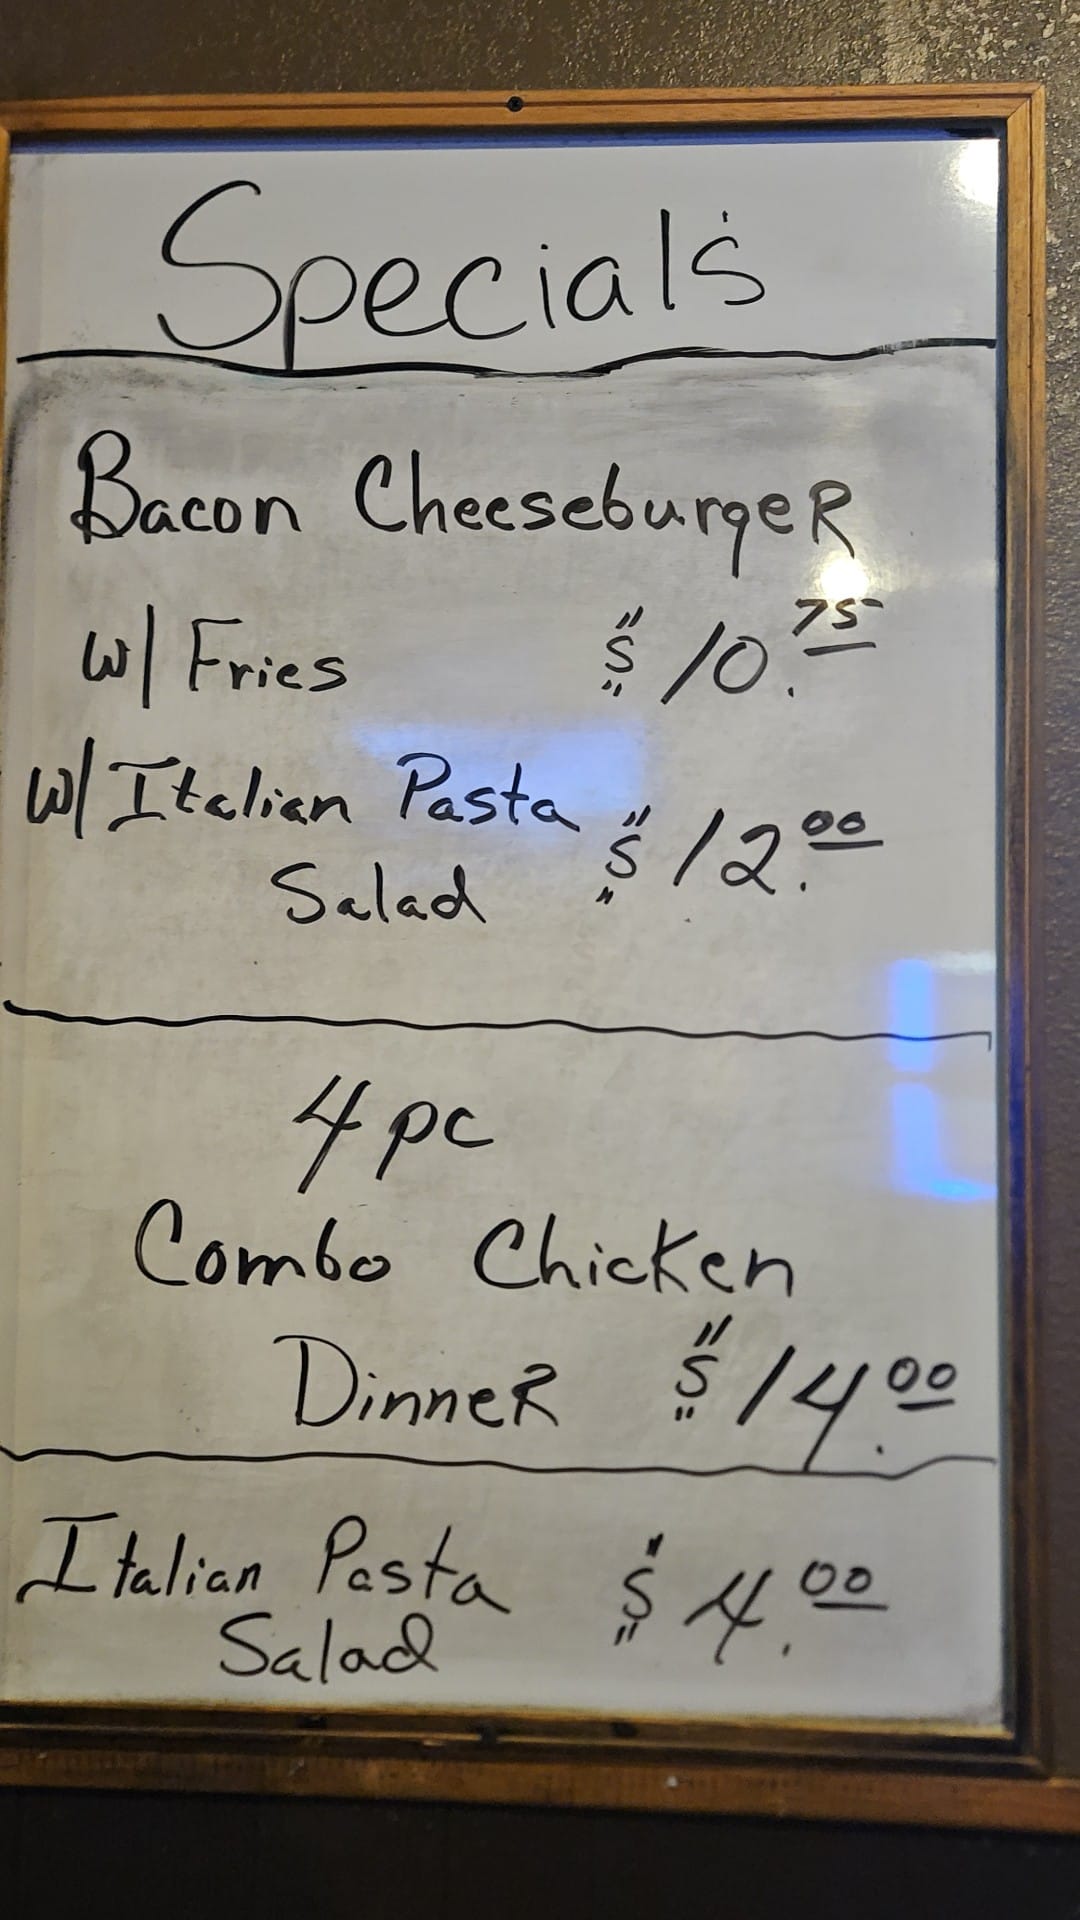 Special's
Bacon CheeseburgeR
w/ Fries $10.75
w/ Italian Pasta
Salad $12.00
4 pc
Combo Chicken
DinneR $14.00
Italian Pasta
Salad $4.00